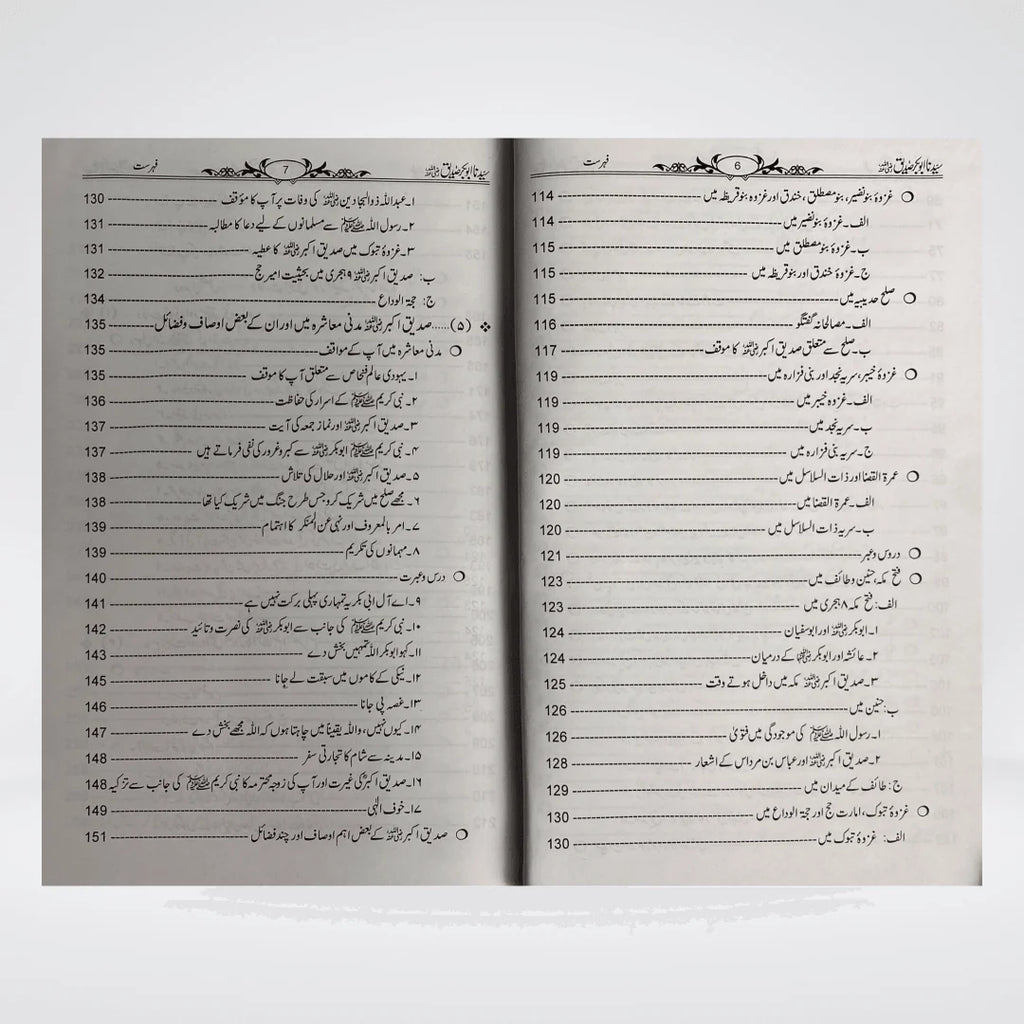 سیدنا ابوبکر صدیق رضی اللہ عنہ 6 فہرست
○ غزوۂ بنو نضیر، بنو مصطلق، خندق اور غزوہ بنو قریظہ میں 114
الف۔ غزوۂ بنو نضیر میں 114
ب۔ غزوۂ بنو مصطلق میں 115
ج۔ غزوۂ خندق اور بنو قریظہ میں 115
○ صلح حدیبیہ میں 115
الف۔ مصالحانہ گفتگو 116
ب۔ صلح سے متعلق صدیق اکبر رضی اللہ عنہ کا موقف 117
○ غزوۂ خیبر، سریہ نجد اور بنی فزارہ میں 119
الف۔ غزوہ خیبر میں 119
ب۔ سریہ نجد میں 119
ج۔ سریہ بنی فزارہ میں 119
○ عمرۃ القضا اور ذات السلاسل میں 120
الف۔ عمرۃ القضا میں 120
ب۔ سریہ ذات السلاسل میں 120
○ دروس وعبر 121
○ فتح مکہ، حنین و طائف میں 123
الف: فتح مکہ ۸ ہجری میں 123
۱۔ ابوبکر رضی اللہ عنہ اور ابوسفیان 124
۲۔ عائشہ اور ابوبکر رضی اللہ عنہما کے درمیان 124
۳۔ صدیق اکبر رضی اللہ عنہ مکہ میں داخل ہوتے وقت 125
ب: حنین میں 126
۱۔ رسول اللہ ﷺ کی موجودگی میں فتویٰ 126
۲۔ صدیق اکبر رضی اللہ عنہ اور عباس بن مرداس کے اشعار 128
ج: طائف کے میدان میں 129
○ غزوۂ تبوک، امارت حج اور حجۃ الوداع میں 130
الف: غزوۂ تبوک میں 130
سیدنا ابوبکر صدیق رضی اللہ عنہ 7 فہرست
۱۔ عبداللہ ذوالبجادین رضی اللہ عنہ کی وفات پر آپ کا مؤقف 130
۲۔ رسول اللہ ﷺ سے مسلمانوں کے لیے دعا کا مطالبہ 131
۳۔ غزوۂ تبوک میں صدیق اکبر رضی اللہ عنہ کا عطیہ 131
ب: صدیق اکبر رضی اللہ عنہ ۹ ہجری میں بحیثیت امیر حج 132
ج: حجۃ الوداع 134
❖ (۵)...... صدیق اکبر رضی اللہ عنہ مدنی معاشرہ میں اور ان کے بعض اوصاف و فضائل 135
○ مدنی معاشرہ میں آپ کے مواقف 135
۱۔ یہودی عالم فنحاص سے متعلق آپ کا موقف 135
۲۔ نبی کریم ﷺ کے اسرار کی حفاظت 136
۳۔ صدیق اکبر رضی اللہ عنہ اور نماز جمعہ کی آیت 137
۴۔ نبی کریم ﷺ ابوبکر رضی اللہ عنہ سے کبر و غرور کی نفی فرماتے ہیں 137
۵۔ صدیق اکبر رضی اللہ عنہ اور حلال کی تلاش 138
۶۔ مجھے صلح میں شریک کرو جس طرح جنگ میں شریک کیا تھا 138
۷۔ امر بالمعروف اور نہی عن المنکر کا اہتمام 139
۸۔ مہمانوں کی تکریم 139
○ درس وعبرت 140
۹۔ اے آل ابی بکر یہ تمہاری پہلی برکت نہیں ہے 141
۱۰۔ نبی کریم ﷺ کی جانب سے ابوبکر رضی اللہ عنہ کی نصرت و تائید 142
۱۱۔ کہو ابوبکر اللہ تمہیں بخش دے 143
۱۲۔ نیکی کے کاموں میں سبقت لے جانا 145
۱۳۔ غصہ پی جانا 146
۱۴۔ کیوں نہیں، واللہ یقیناً میں چاہتا ہوں کہ اللہ مجھے بخش دے 147
۱۵۔ مدینہ سے شام کا تجارتی سفر 148
۱۶۔ صدیق اکبر کی غیرت اور آپ کی زوجہ محترمہ کا نبی کریم ﷺ کی جانب سے تزکیہ 148
۱۷۔ خوف الٰہی 149
○ صدیق اکبر رضی اللہ عنہ کے بعض اہم اوصاف اور چند فضائل 151